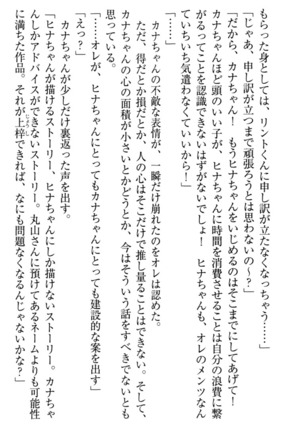 もらった身としては、リントくんに申し訳が立たなくなっちゃう……」
「じゃあ、申し訳が立つまで頑張ろうとは思わないの〜？」
「だから、カナちゃん！　もうヒナちゃんをいじめるのはそこまでにしてあげて！
カナちゃんほど頭のいい子が、ヒナちゃんに時間を消費させることは自分の浪費に繋
がるってことを認識できないはずがないでしょ！　ヒナちゃんも、オレのメンツなん
ていちいち気遣わなくていいから！」
　カナちゃんの不敵な表情が、一瞬だけ崩れたのをオレは認めた。
　ただ、得だとか損だとか、人の心はそこだけで推し量ることはできない。そして、
カナちゃんの心の面積が小さいとかどうとか、今はそういう話をすべきでないとも
思っている。
「……オレが、ヒナちゃんにとってもカナちゃんにとっても建設的な案を出す」
「えっ？」
　カナちゃんが少しだけ裏返った声を出す。
「カナちゃんが描けるストーリー、ヒナちゃんにしか描けないストーリー。カナちゃ
んしかアドバイスができないストーリー。丸山さんに預けてあるネームよりも可能性
に満ちた作品。それが上梓できれば、なにも問題なくなるんじゃないかな？」